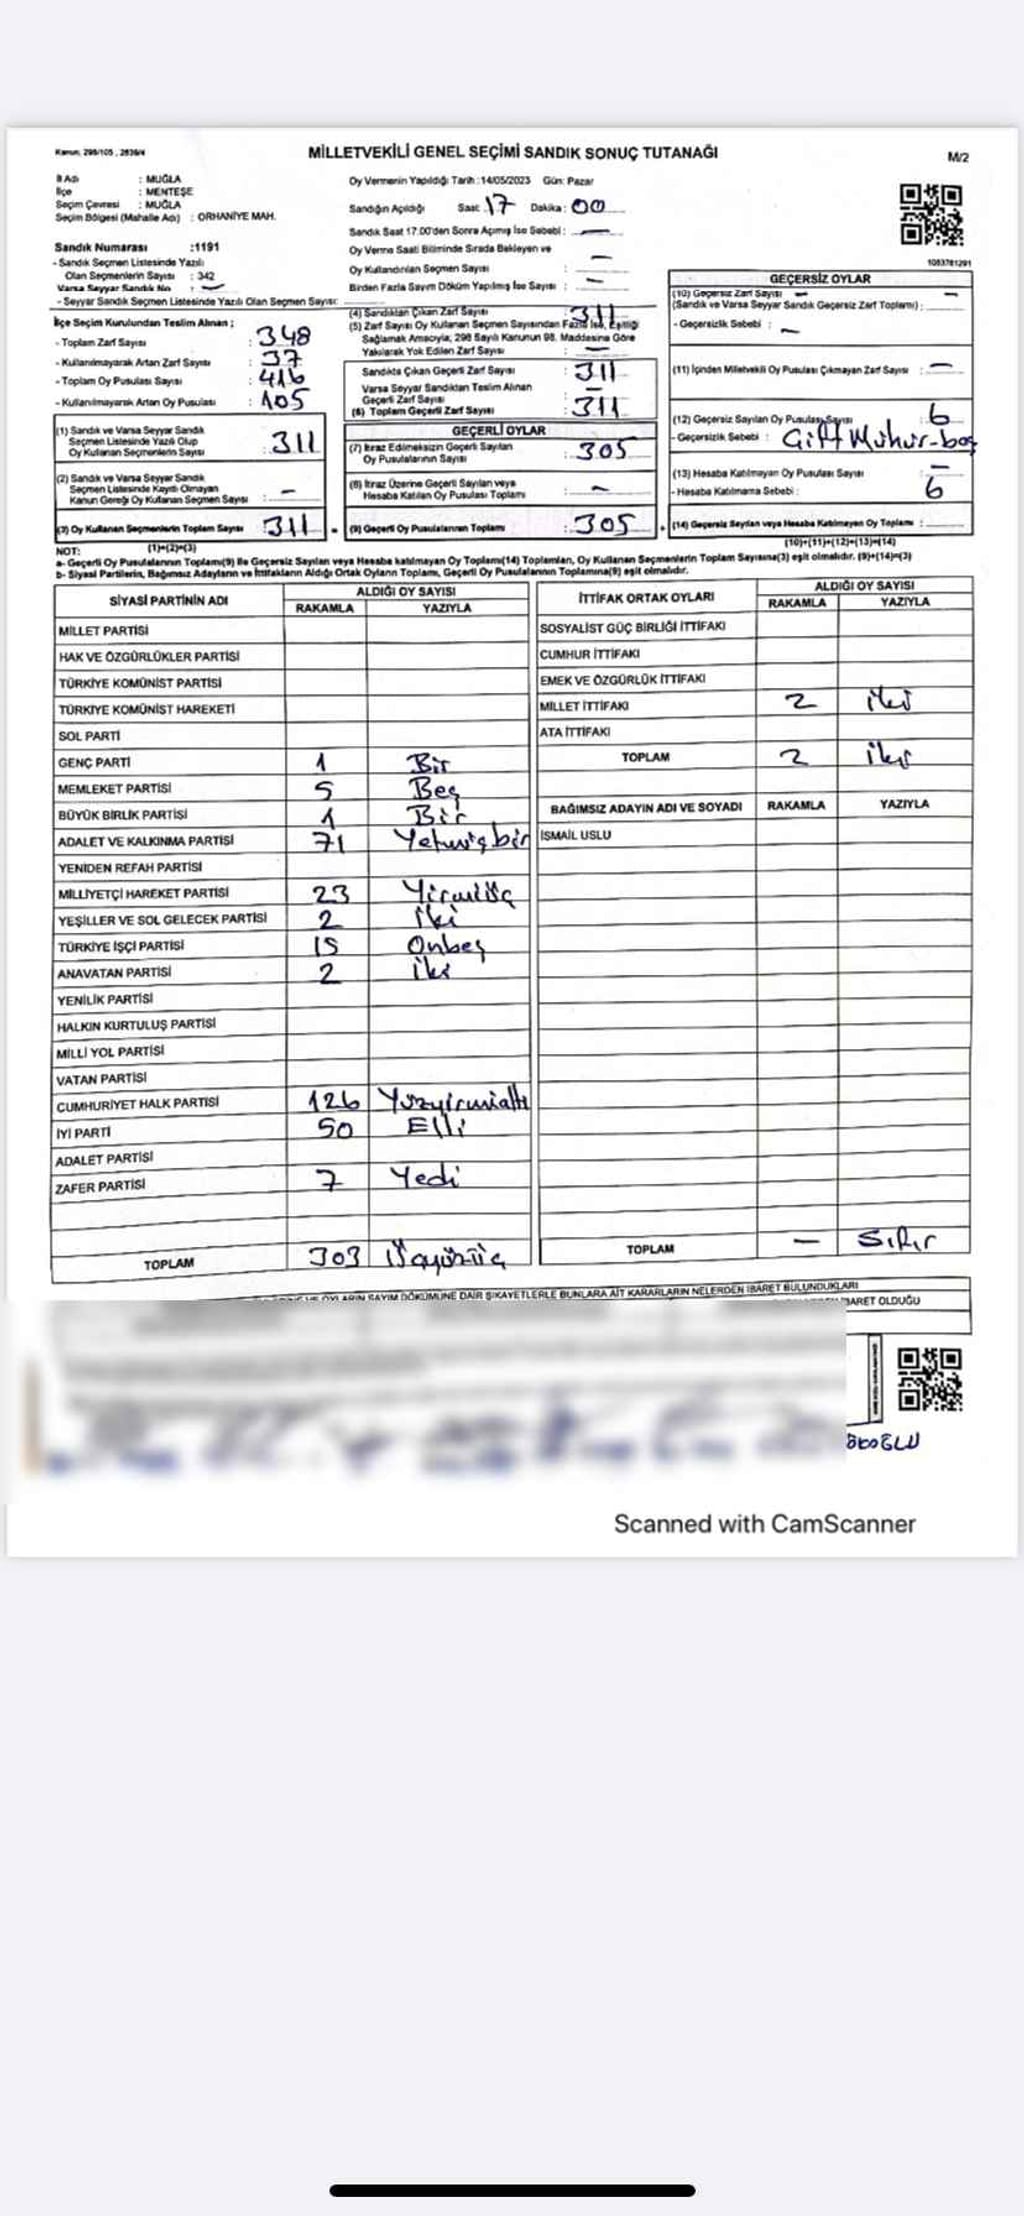 Kanun: 298/105 , 2839/4
MİLLETVEKİLİ GENEL SEÇİMİ SANDIK SONUÇ TUTANAĞI
M/2
İl Adı : MUĞLA
İlçe : MENTEŞE
Seçim Çevresi : MUĞLA
Seçim Bölgesi (Mahalle Adı) : ORHANİYE MAH.
Sandık Numarası :1191
- Sandık Seçmen Listesinde Yazılı
Olan Seçmenlerin Sayısı : 342
Varsa Seyyar Sandık No : —
- Seyyar Sandık Seçmen Listesinde Yazılı Olan Seçmen Sayısı:
Oy Vermenin Yapıldığı Tarih :14/05/2023 Gün: Pazar
Sandığın Açıldığı Saat: 17 Dakika: 00
Sandık Saat 17.00'den Sonra Açmış İse Sebebi : —
Oy Verme Saati Bitiminde Sırada Bekleyen ve
Oy Kullandırılan Seçmen Sayısı : —
Birden Fazla Sayım Döküm Yapılmış İse Sayısı : —
1083781291
İlçe Seçim Kurulundan Teslim Alınan ;
- Toplam Zarf Sayısı : 348
- Kullanılmayarak Artan Zarf Sayısı : 37
- Toplam Oy Pusulası Sayısı : 416
- Kullanılmayarak Artan Oy Pusulası : 105
(1) Sandık ve Varsa Seyyar Sandık
Seçmen Listesinde Yazılı Olup
Oy Kullanan Seçmenlerin Sayısı : 311
(2) Sandık ve Varsa Seyyar Sandık
Seçmen Listesinde Kayıtlı Olmayan
Kanun Gereği Oy Kullanan Seçmen Sayısı : —
(3) Oy Kullanan Seçmenlerin Toplam Sayısı : 311
(1)+(2)=(3)
(4) Sandıktan Çıkan Zarf Sayısı : 311
(5) Zarf Sayısı Oy Kullanan Seçmen Sayısından Fazla İse, Eşitliği
Sağlamak Amacıyla; 298 Sayılı Kanunun 98. Maddesine Göre
Yakılarak Yok Edilen Zarf Sayısı : —
Sandıkta Çıkan Geçerli Zarf Sayısı : 311
Varsa Seyyar Sandıktan Teslim Alınan
Geçerli Zarf Sayısı : —
(6) Toplam Geçerli Zarf Sayısı : 311
GEÇERLİ OYLAR
(7) İtiraz Edilmeksizin Geçerli Sayılan
Oy Pusulalarının Sayısı : 305
(8) İtiraz Üzerine Geçerli Sayılan veya
Hesaba Katılan Oy Pusulası Toplamı : —
(9) Geçerli Oy Pusulalarının Toplamı : 305
GEÇERSİZ OYLAR
(10) Geçersiz Zarf Sayısı — —
(Sandık ve Varsa Seyyar Sandık Geçersiz Zarf Toplamı) :
- Geçersizlik Sebebi : —
(11) İçinden Milletvekili Oy Pusulası Çıkmayan Zarf Sayısı : —
(12) Geçersiz Sayılan Oy Pusulası Sayısı : 6
- Geçersizlik Sebebi : Çift Mühür-boş
(13) Hesaba Katılmayan Oy Pusulası Sayısı : —
- Hesaba Katılmama Sebebi : 6
(14) Geçersiz Sayılan veya Hesaba Katılmayan Oy Toplamı :
(10)+(11)+(12)+(13)=(14)
NOT:
a- Geçerli Oy Pusulalarının Toplamı(9) ile Geçersiz Sayılan veya Hesaba katılmayan Oy Toplamı(14) Toplamları, Oy Kullanan Seçmenlerin Toplam Sayısına(3) eşit olmalıdır. (9)+(14)=(3)
b- Siyasi Partilerin, Bağımsız Adayların ve İttifakların Aldığı Ortak Oyların Toplamı, Geçerli Oy Pusulalarının Toplamına(9) eşit olmalıdır.
SİYASİ PARTİNİN ADI ALDIĞI OY SAYISI
RAKAMLA YAZIYLA
MİLLET PARTİSİ
HAK VE ÖZGÜRLÜKLER PARTİSİ
TÜRKİYE KOMÜNİST PARTİSİ
TÜRKİYE KOMÜNİST HAREKETİ
SOL PARTİ
GENÇ PARTİ 1 Bir
MEMLEKET PARTİSİ 5 Beş
BÜYÜK BİRLİK PARTİSİ 1 Bir
ADALET VE KALKINMA PARTİSİ 71 Yetmişbir
YENİDEN REFAH PARTİSİ
MİLLİYETÇİ HAREKET PARTİSİ 23 Yirmiüç
YEŞİLLER VE SOL GELECEK PARTİSİ 2 İki
TÜRKİYE İŞÇİ PARTİSİ 15 Onbeş
ANAVATAN PARTİSİ 2 İki
YENİLİK PARTİSİ
HALKIN KURTULUŞ PARTİSİ
MİLLİ YOL PARTİSİ
VATAN PARTİSİ
CUMHURİYET HALK PARTİSİ 126 Yüzyirmialtı
İYİ PARTİ 50 Elli
ADALET PARTİSİ
ZAFER PARTİSİ 7 Yedi
TOPLAM 303 Üçyüzüç
İTTİFAK ORTAK OYLARI ALDIĞI OY SAYISI
RAKAMLA YAZIYLA
SOSYALİST GÜÇ BİRLİĞİ İTTİFAKI
CUMHUR İTTİFAKI
EMEK VE ÖZGÜRLÜK İTTİFAKI
MİLLET İTTİFAKI 2 iki
ATA İTTİFAKI
TOPLAM 2 iki
BAĞIMSIZ ADAYIN ADI VE SOYADI RAKAMLA YAZIYLA
İSMAİL USLU
TOPLAM — Sıfır
OYLARIN SAYIM DÖKÜMÜNE DAİR ŞİKAYETLERLE BUNLARA AİT KARARLARIN NELERDEN İBARET BULUNDUKLARI
İBARET OLDUĞU
Scanned with CamScanner